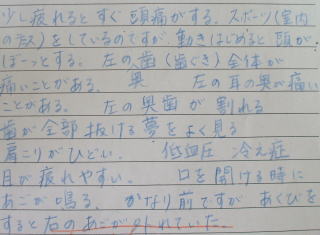 少し疲れるとすぐ頭痛がする。スポーツ(室内
の)をしているのですが、動きはじめると頭が
ぼーっとする。 左の歯(歯ぐき)全体が
痛いことがある。 奥 左の耳の奥が痛い
ことがある。 左の奥歯が割れる
歯が全部抜ける夢をよく見る
肩こりがひどい。 低血圧 冷え症
目が疲れやすい。 口を開ける時に
あごが鳴る。 かなり前ですが あくびを
すると右のあごが外れていた。